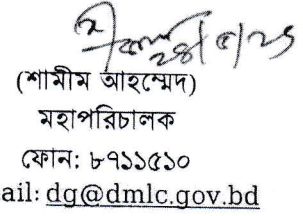 (শামীম আহম্মেদ)
মহাপরিচালক
ফোন: ৮৭১১৫১০
ail: dg@dmlc.gov.bd